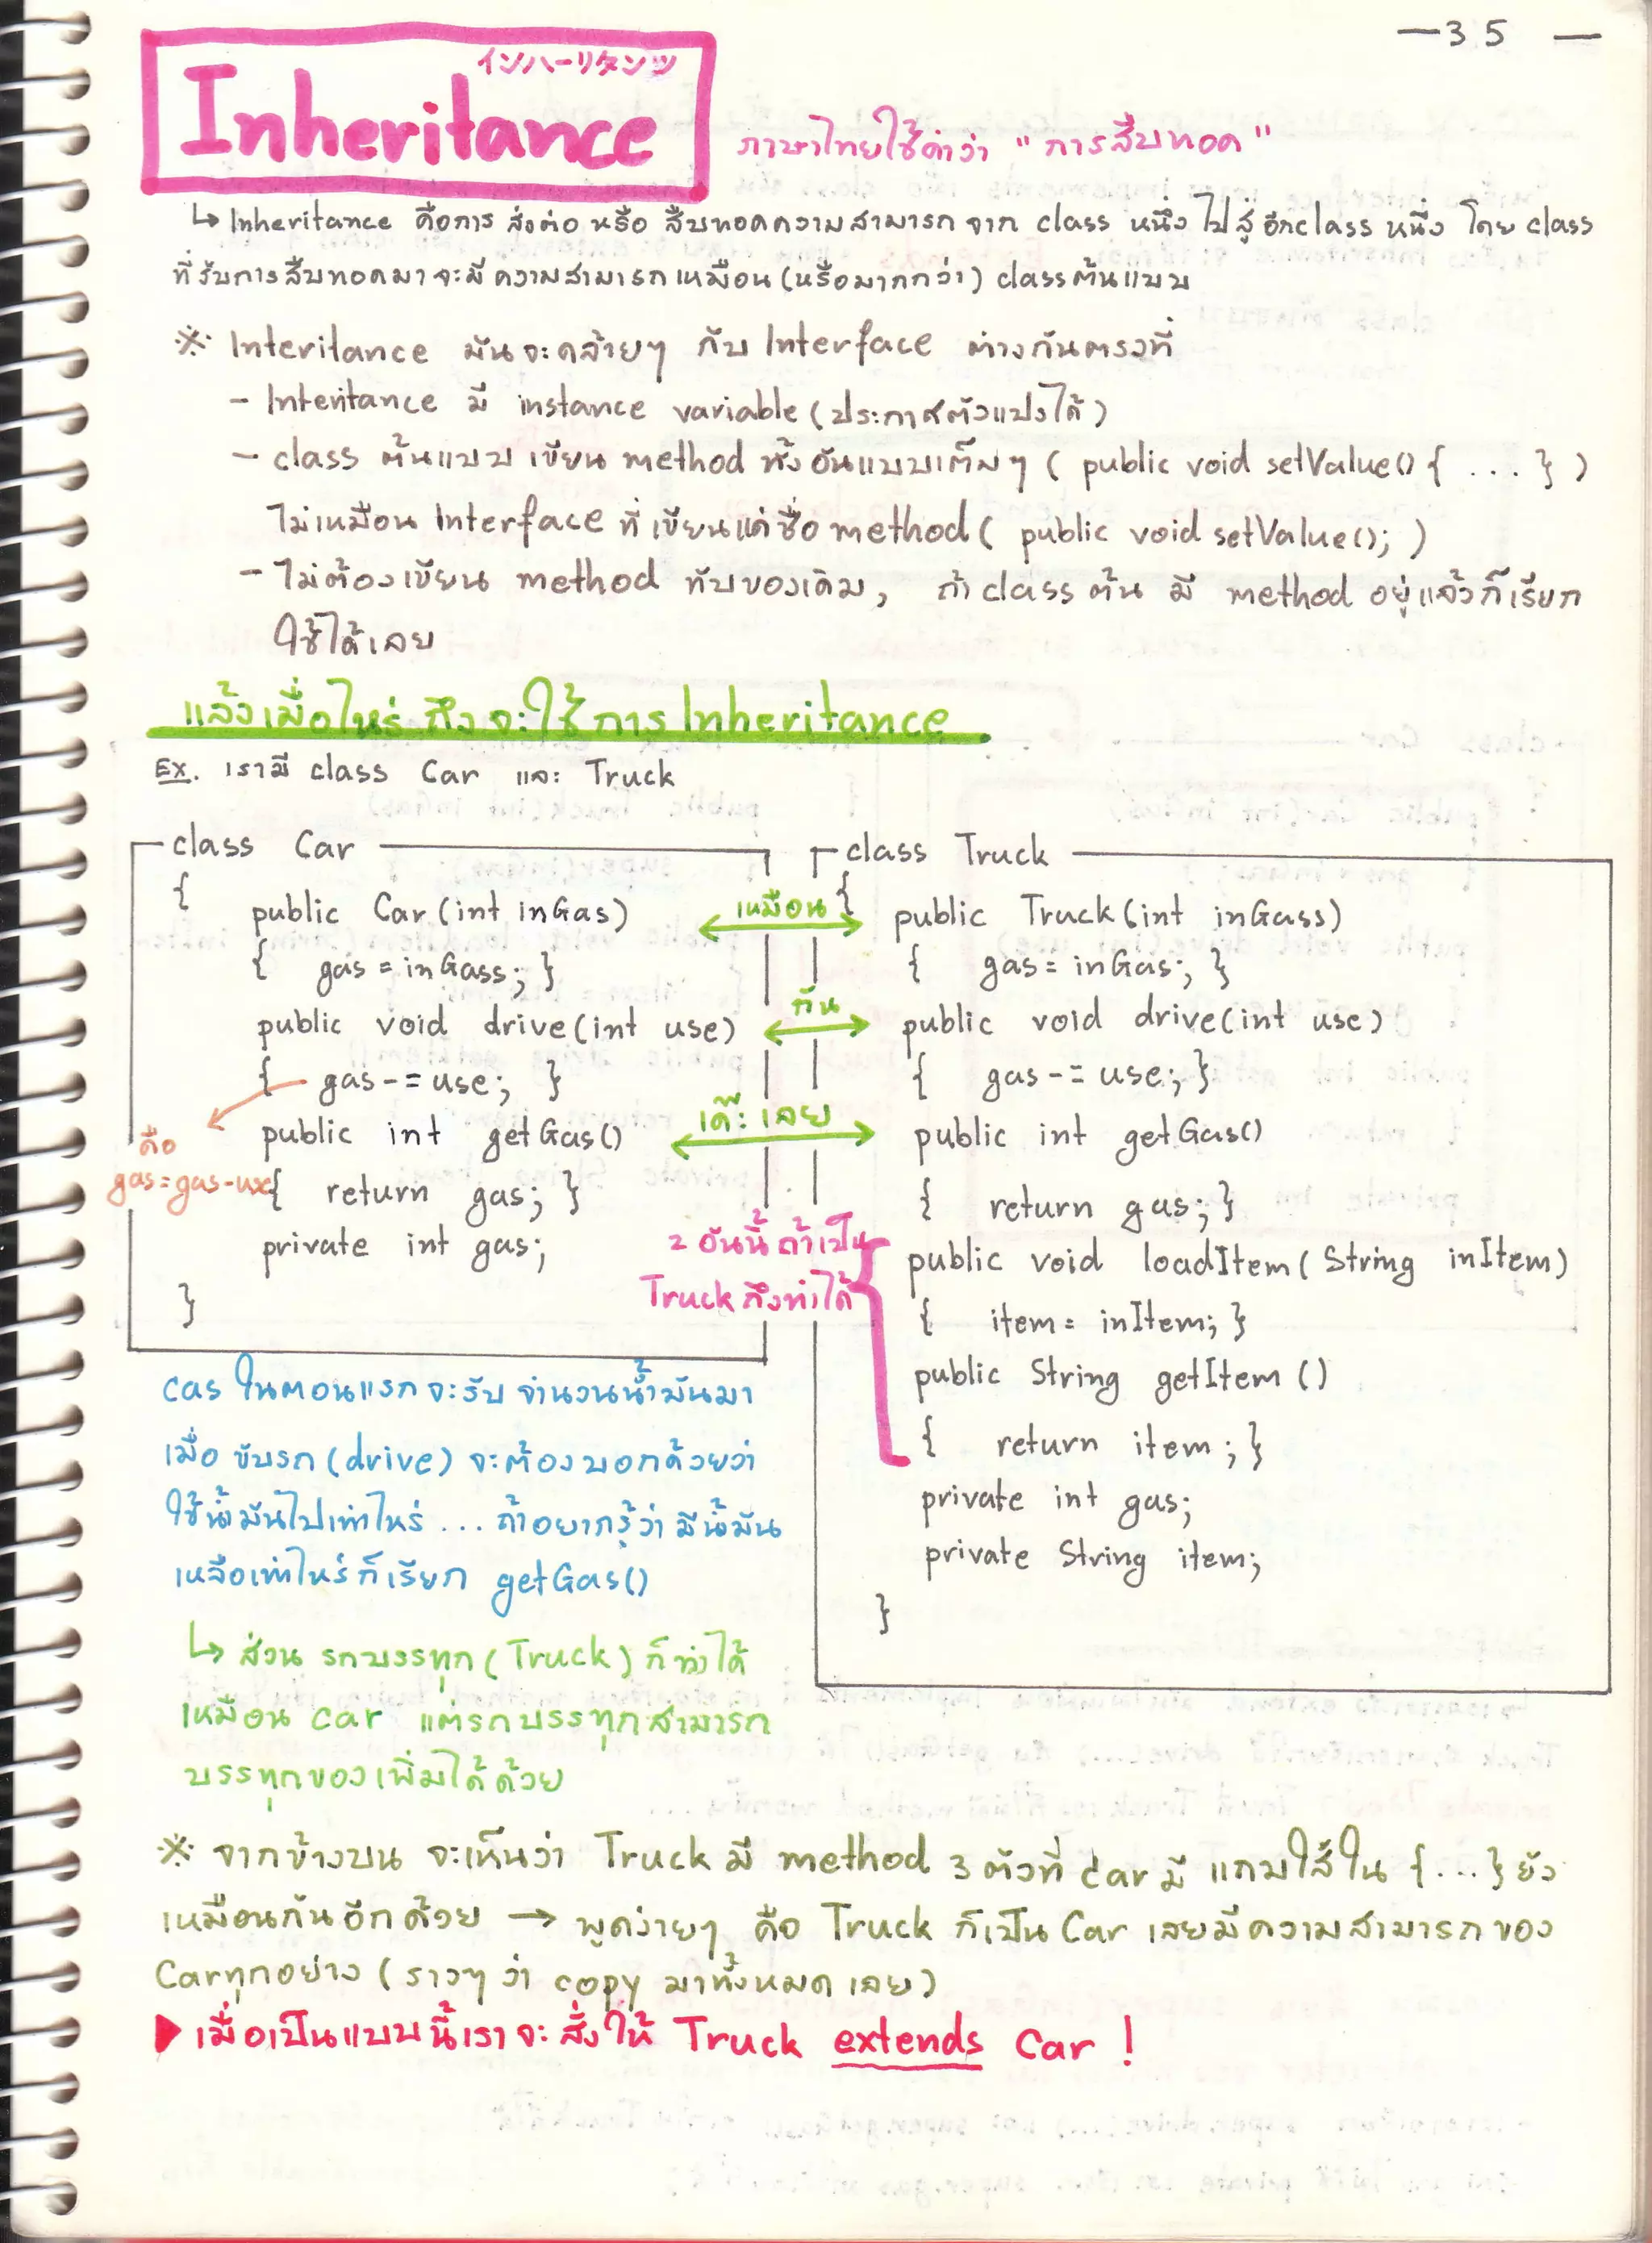 —35 —
インハーリタンツ
Inheritance
ภาษาไทยใช้คำว่า "การสืบทอด"
↳ Inheritance คือการ ส่งต่อ หรือ สืบทอดความสามารถ จาก class หนึ่ง ไปสู่ อีกclass หนึ่ง โดย class
ที่รับการสืบทอดมาจะมีความสามารถเหมือน (หรือมากกว่า) classต้นแบบ
※ Interitance มันจะคล้ายๆ กับ Interface ต่างกันตรงที่
- Interitance มี instance variable (ประกาศตัวแปรได้)
- class ต้นแบบ เขียน method ทั้งอันแบบเต็มๆ ( public void setValue() { ... } )
ไม่เหมือน Interface ที่เขียนแค่ชื่อ method ( public void setValue(); )
- ไม่ต้องเขียน method ทับของเดิม, ถ้า class ต้น มี method อยู่แล้วก็เรียก
ใช้ได้เลย
แล้วเมื่อไหร่ ถึงจะใช้การ Inheritance
Ex. เรามี class Car และ Truck
class Car
{
public Car(int inGas)
{ gas = inGass; }
public void drive(int use)
{ gas -= use; }
public int getGas()
{ return gas; }
private int gas;
}
คือ
gas=gas-use
เหมือน
กัน
เด๊ะเลย
2 อันนี้ ถ้าเป็น
Truckถึงทำได้
class Truck
{
public Truck(int inGass)
{ gas = inGas; }
public void drive(int use)
{ gas -= use; }
public int getGas()
{ return gas; }
public void loadItem( String inItem)
{ item = inItem; }
public String getItem ()
{ return item ; }
private int gas;
private String item;
}
cas ในตอนแรก จะรับ จำนวนน้ำมันมา
เมื่อ ขับรถ (drive) จะต้องบอกด้วยว่า
ใช้น้ำมันไปเท่าไหร่ ... ถ้าอยากรู้ว่า มีน้ำมัน
เหลือเท่าไหร่ ก็เรียก getGas()
↳ ส่วน รถบรรทุก (Truck) ก็ทำได้
เหมือน car แต่รถบรรทุกสามารถ
บรรทุกของเพิ่มได้ด้วย
※ จากข้างบน จะเห็นว่า Truck มี method 3 ตัวที่ car มี แถมไส้ใน {...} ยัง
เหมือนกันอีกด้วย → พูดง่ายๆ คือ Truck ก็เป็น Car เลยมีความสามารถของ
Carทุกอย่าง (ราวๆ ว่า copy มาทั้งหมดเลย)
▶ เมื่อเป็นแบบนี้เราจะ สั่งให้ Truck extends Car !